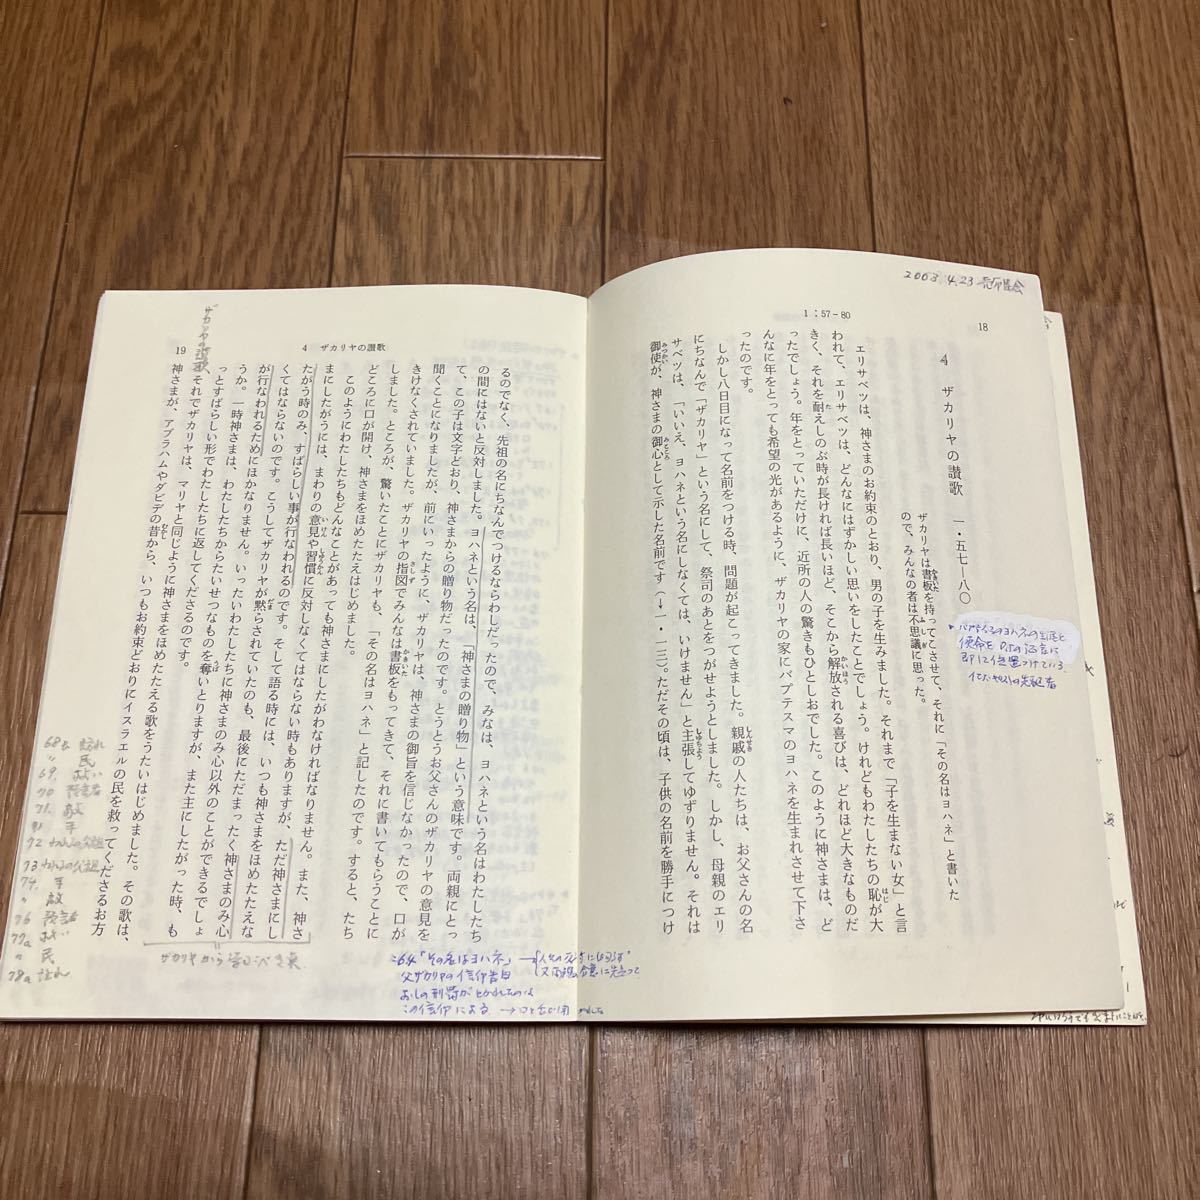 2003.4.23
18
1：57-80
4　ザカリヤの讃歌　一・五七―八〇
ザカリヤは書板を持ってこさせて、それに「その名はヨハネ」と書いた
ので、みんなの者は不思議に思った。
エリサベツは、神さまのお約束のとおり、男の子を生みました。それまで「子を生まない女」と言
われて、エリサベツは、どんなにはずかしい思いをしたことでしょう。けれどもわたしたちの恥が大
きく、それを耐えしのぶ時が長ければ長いほど、そこから解放される喜びは、どれほど大きなものだ
ったでしょう。年をとっていただけに、近所の人の驚きもひとしおでした。このように神さまは、ど
んなに年をとっても希望の光があるように、ザカリヤの家にバプテスマのヨハネを生まれさせて下さ
ったのです。
しかし八日目になって名前をつける時、問題が起こってきました。親戚の人たちは、お父さんの名
にちなんで「ザカリヤ」という名にして、祭司のあとをつがせようとしました。しかし、母親のエリ
サベツは、「いいえ、ヨハネという名にしなくては、いけません」と主張してゆずりません。それは
御使が、神さまの御心として示した名前です（→一・一三）。ただその頃は、子供の名前を勝手につけ
4　ザカリヤの讃歌
19
るのでなく、先祖の名にちなんでつけるならわしだったので、みなは、ヨハネという名はわたしたち
の間にはないと反対しました。ヨハネという名は、「神さまの贈り物」という意味です。両親にとっ
て、この子は文字どおり、神さまからの贈り物だったのです。とうとうお父さんのザカリヤの意見を
聞くことになりましたが、前にいったように、ザカリヤは、神さまの御旨を信じなかったので、口が
きけなくされていました。ザカリヤの指図でみんなは書板をもってきて、それに書いてもらうことに
しました。ところが、驚いたことにザカリヤも、「その名はヨハネ」と記したのです。すると、たち
どころに口が開け、神さまをほめたたえはじめました。
このようにわたしたちもどんなことがあっても神さまにしたがわなければなりません。また、神さ
まにしたがうには、まわりの意見や習慣に反対しなくてはならない時もありますが、ただ神さまにし
たがう時のみ、すばらしい事が行なわれるのです。そして語る時には、いつも神さまをほめたたえな
くてはならないのです。こうしてザカリヤが黙らされていたのも、最後にただまったく神さまのみ心
が行なわれるためにほかなりません。いったいわたしたちに神さまのみ心以外のことができるでしょ
うか。一時神さまは、わたしたちからたいせつなものを奪いとりますが、また主にしたがった時、も
っとすばらしい形でわたしたちに返してくださるのです。
それでザカリヤは、マリヤと同じように神さまをほめたたえる歌をうたいはじめました。その歌は、
神さまが、アブラハムやダビデの昔から、いつもお約束どおりにイスラエルの民を救ってくださるお方
ザカリヤの讃歌
68a 訪れ
〃 民
69.
70 預言者
71. 敵
71 手
72 われらの父祖
73 われらの父祖
74. 手
〃 敵
76 預言者
77a
〃 民
78a 訪れ
ザカリヤから学ぶべき事
:64「その名はヨハネ」→
父ザカリヤの信仰告白
この信仰による